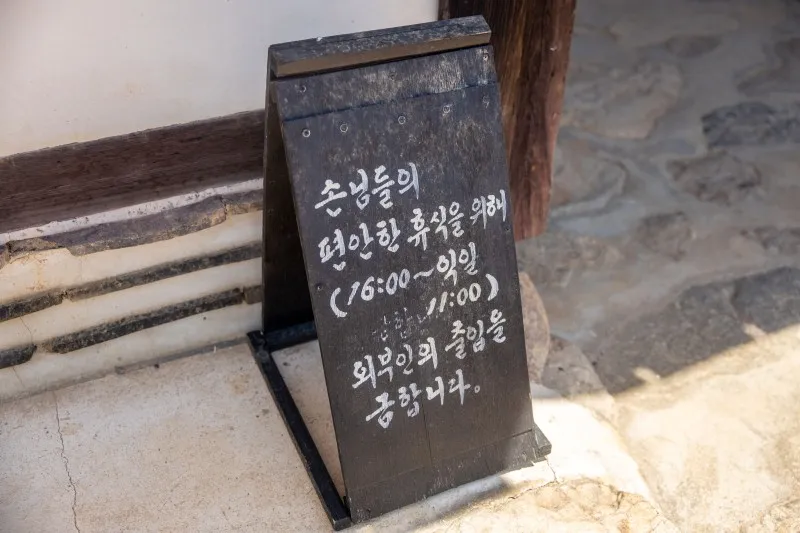 손님들의
편안한 휴식을 위해
(16:00~익일
11:00)
외부인의 출입을
금합니다.